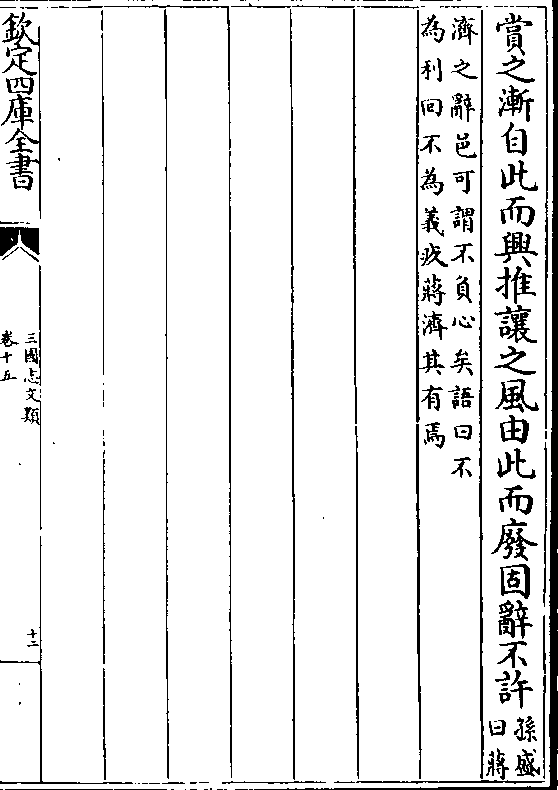 賞之漸自此而興推讓之風由此而廢固辭不許孫盛
曰蔣
濟之辭邑可謂不負心矣語曰不
為利回不為義疚蔣濟其有焉
欽定四庫全書
三國志文類
卷十五
十二